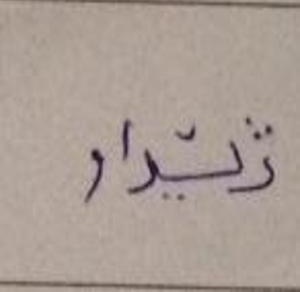 ژێدار